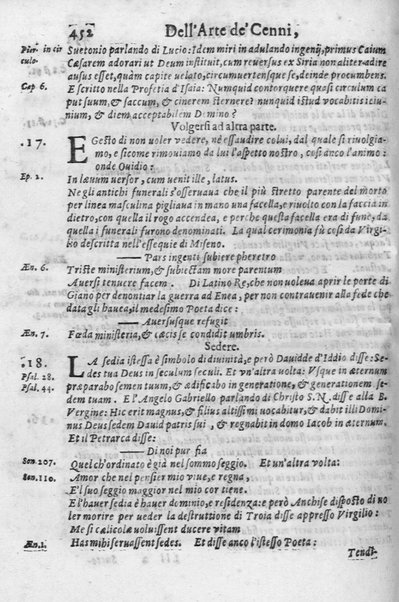 452 Dell'Arte de' Cenni,
Pier. in cir Suetonio parlando di Lucio: Idem miri in adulando ingenij, primus Caium
culo. Cæsarem adorari ut Deum instituit, cum reuersus ex Siria non aliter adire
ausus esset, quàm capite uelato, circumuertensque se, deinde procumbens.
Cap 6. E scritto nella Profetia d'Isaia: Nunquid contorquere quasi circulum ca
put suum, & saccum, & cinerem sternere? nunquid istud uocabitis ieiu-
nium, & diem acceptabilem Domino?
Volgersi ad altra parte.
17. E Gesto di non uoler vedere, né essaudire colui, dal quale si riuolgia-
mo, e sicome rimouiamo da lui l'aspetto nostro, così anco l'animo:
onde Ouidio:
Ep. 2. In læuum uersor, cum uenit ille, latus.
Ne gli antichi funerali s'osseruaua che il più stretto parente del morto
per linea masculina pigliaua in mano una facella, e riuolto con la faccia in
dietro, con quella il rogo accendea, e perche questa facella era di fune, da
quella i funerali furono denominati. La qual cerimonia fù così da Virgi-
lio descritta nell'essequie di Miseno.
—— Pars ingenti subiere pheretro
Æn. 6. Triste ministerium, & subiectam more parentum
Auersi tenuere facem. Di Latino Re, che non uoleua aprir le porte di
Giano per denontiar la guerra ad Enea, per non contrauenir alla fede che
data gli hauea, il medesimo Poeta dice:
—— Auersusque refugit
Æn. 7. Fœda ministeria, & cæcis se condidit umbris.
Sedere.
18. LA sedia istessa è simbolo di diuinità, e però Dauidde d'Iddio disse: Se-
Psal. 28. des tua Deus in seculum seculi. Et vn'altra uolta: Vsque in æternum
Psal. 44. præparabo semen tuum, & ædificabo in generatione, & generationem se
dem tuam. E l'Angelo Gabriello parlando di Christo S.N. disse alla B.
Vergine: Hic erit magnus, & filius altissimi uocabitur, & dabit illi Domi-
nus Deus sedem Dauid patris sui, & regnabit in domo Iacob in æternum.
Et il Petrarca disse:
—— Di noi pur fia
Son. 207. Quel ch'ordinato è già nel sommo seggio. Et un'altra uolta:
Son. 110. Amor che nel pensier mio viue, e regna,
E'l suo seggio maggior nel mio cor tiene.
E l'hauer sedia è hauer dominio, e residenza: e però Anchise disposto di uo
ler morire per ueder la destruttione di Troia disse appresso Virgilio:
Me si cælicolæ uoluissent ducere vitam
Æn. 1. Has mihi seruassent sedes. Et disse anco l'istesso Poeta:
Tendi-